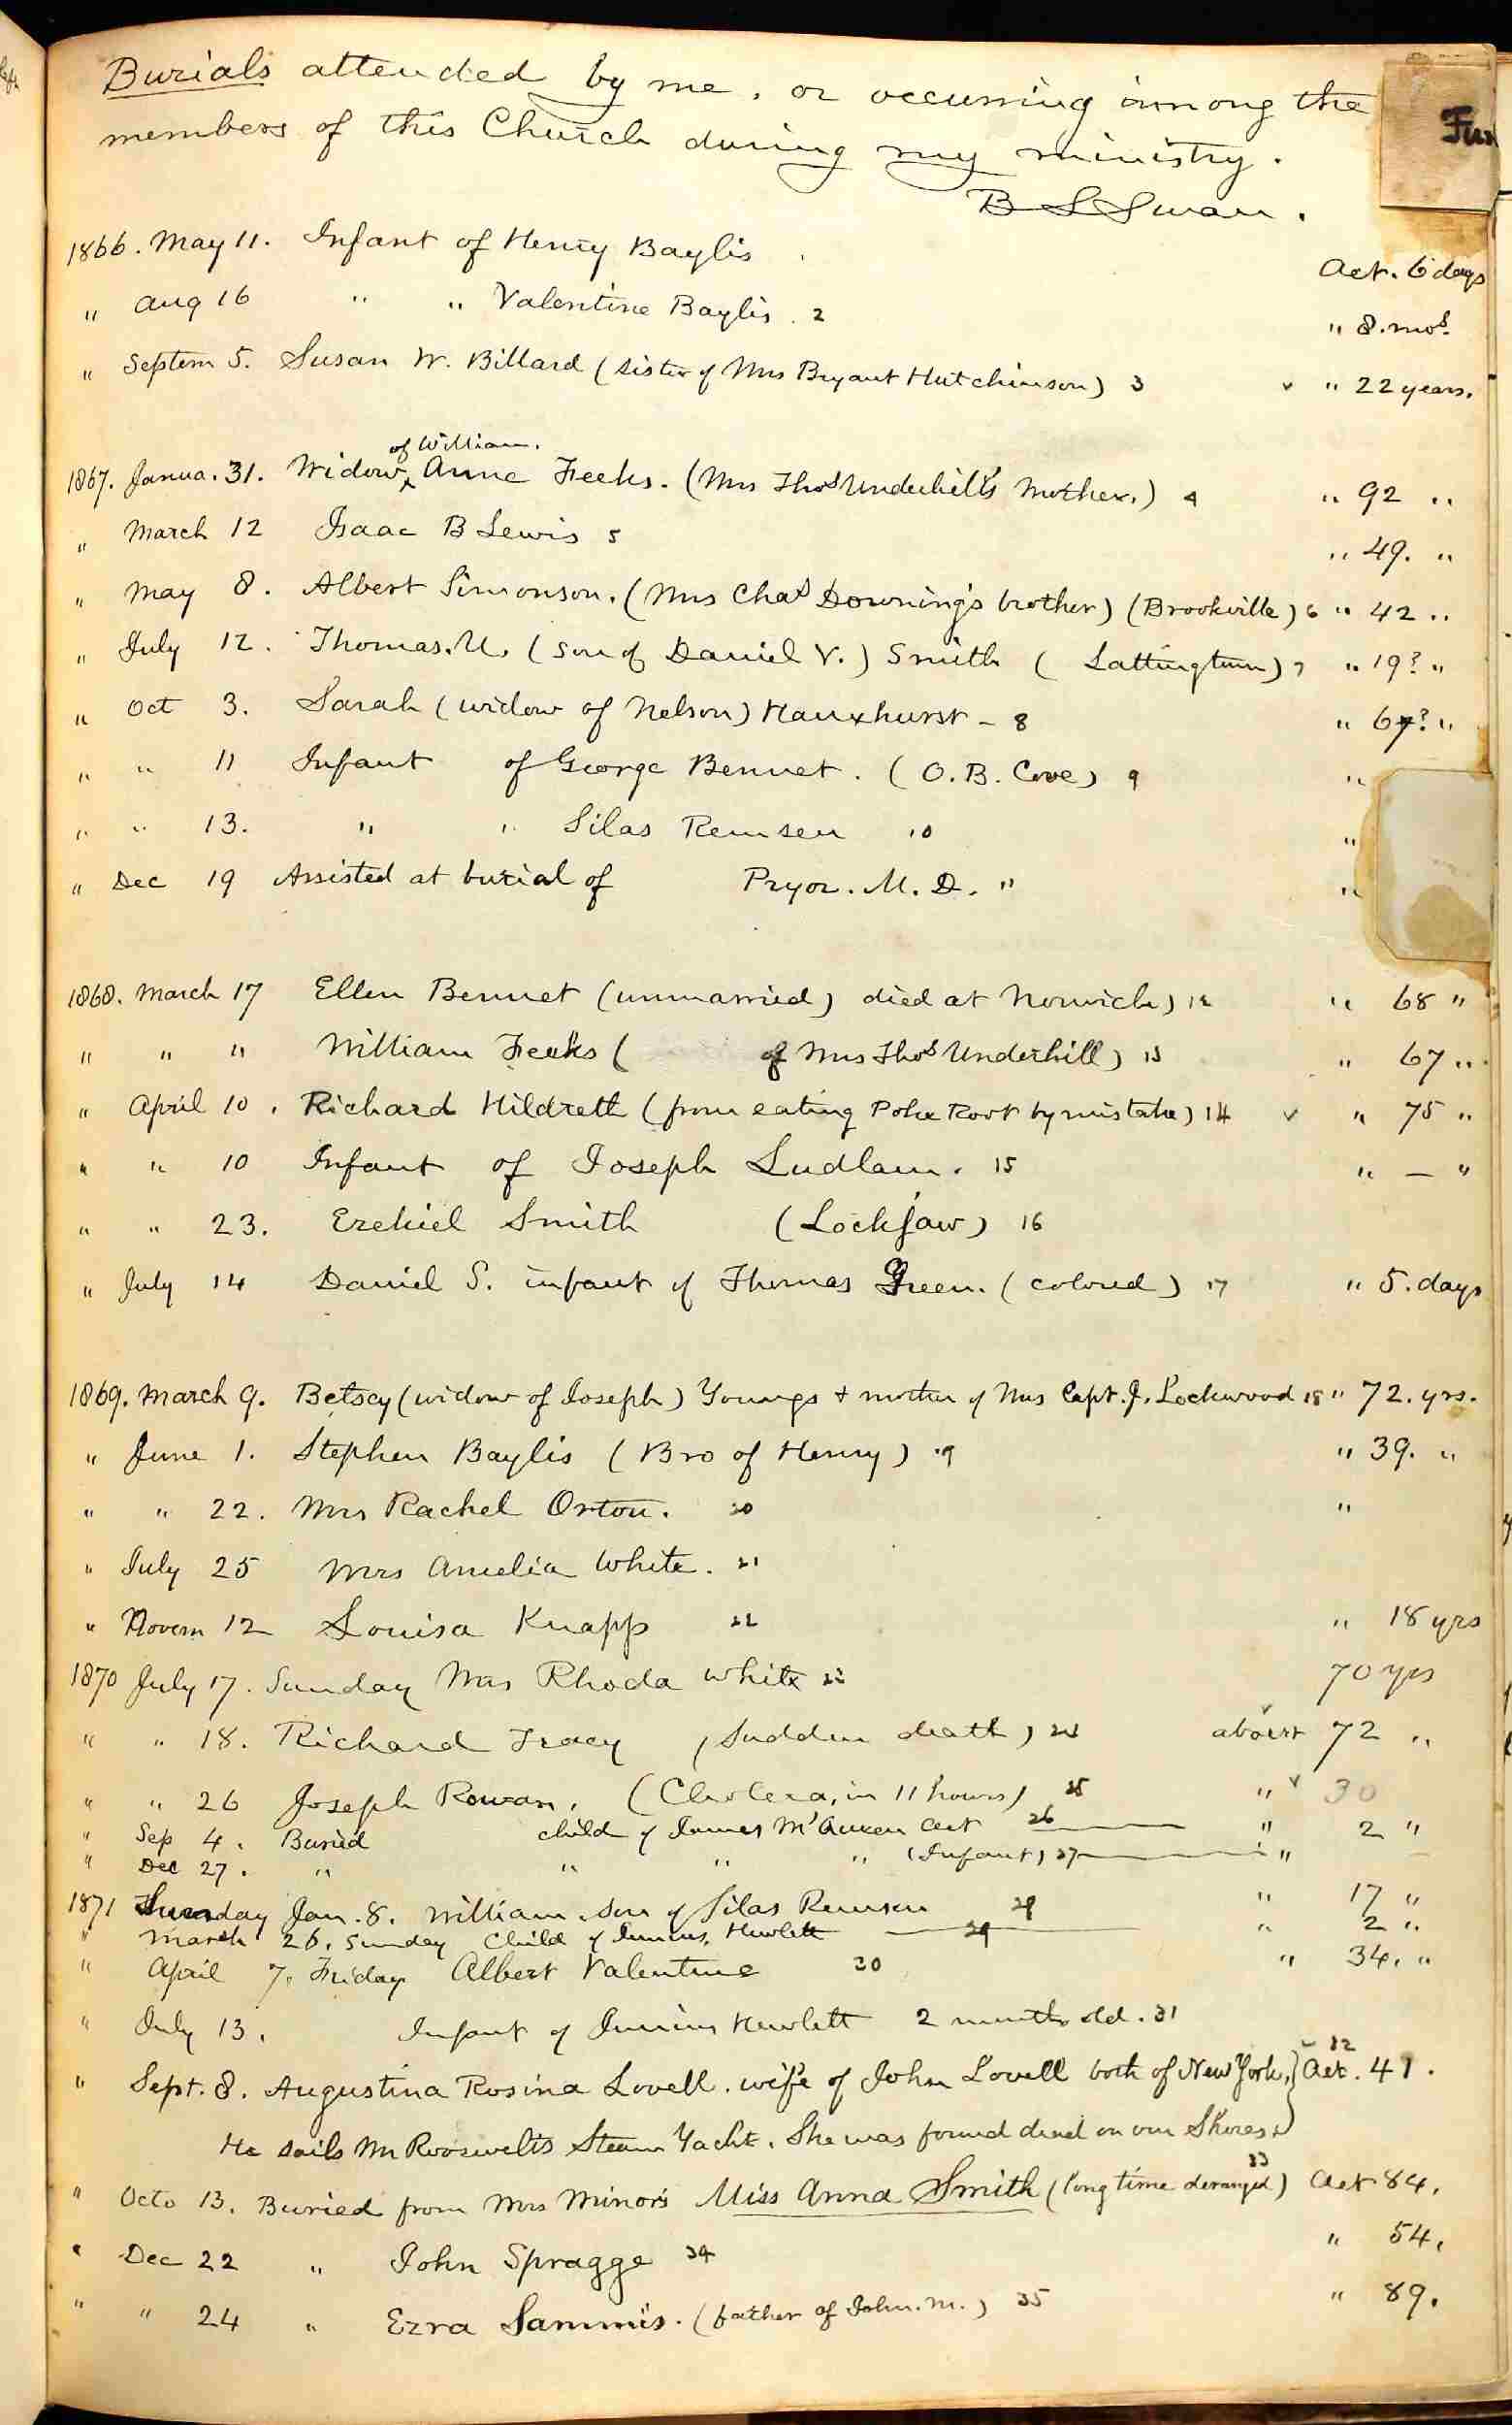 Burials attended by me, or occurring among the
members of this Church during my ministry.
B S Swan.
Fun
1866. May 11. Infant of Henry Baylis Aet. 6 days
" Aug 16 " " Valentine Baylis. 2 " 8. mos.
" Septem 5. Susan W. Billard (sister of Mrs Bryant Hutchinson) 3 " 22 years.
of William.
1867. Janua. 31. Widow ^ Anne Feeks. (Mrs Thos Underhill's Mother.) 4 " 92 "
" March 12 Isaac B Lewis 5 " 49. "
" May 8. Albert Simonson. (Mrs Chas Downing's brother) (Brookville) 6 " 42 "
" July 12. Thomas. U. (son of Daniel V.) Smith (Lattingtown) 7 " 19? "
" Oct 3. Sarah (widow of Nelson) Hauxhurst - 8 " 67? "
" " 11 Infant of George Bennet. (O. B. Cove) 9 "
" " 13. " " Silas Remsen 10 "
" Dec 19 Assisted at burial of Pryor. M. D. 11 "
1868. March 17 Ellen Bennet (unmarried) died at Norwich) 12 " 68 "
" " " William Feeks ( of Mrs Thos Underhill) 13 " 67 "
" April 10. Richard Hildreth (from eating Poke Root by mistake) 14 v " 75 "
" " 10 Infant of Joseph Ludlam. 15 " — "
" " 23. Ezekiel Smith (Lockjaw) 16
" July 14 Daniel S. infant of Thomas Green. (colored) 17 " 5. days
1869. March 9. Betsey (widow of Joseph) Youngs + mother of Mrs Capt. J. Lockwood 18 " 72. yrs.
" June 1. Stephen Baylis (Bro of Henry) 19 " 39. "
" " 22. Mrs Rachel Orton. 20 "
" July 25 Mrs Amelia White. 21
" Novem 12 Louisa Knapp 22 " 18 yrs
1870 July 17. Sunday Mrs Rhoda White 23 70 yrs
" " 18. Richard Tracy (Sudden death) 24 about 72 "
" " 26 Joseph Rowan. (Cholera, in 11 hours) 25 " v 30
" Sep 4. Buried child of James McQueen aet 26 " 2 "
" Dec 27. " " " " (Infant) 27 "
1871 Sunday Jan. 8. William. son of Silas Remsen 28 " 17 "
" March 26. Sunday Child of Junius. Hewlett 29 " 2 "
" April 7. Friday Albert Valentine 30 " 34. "
" July 13. Infant of Junius Hewlett 2 months old. 31
" Sept. 8. Augustina Rosina Lovell. wife of John Lovell both of New York.} Aet. 41. 32
He sails Mr Roosevelt's Steam Yacht. She was found dead on our Shores.
" Octo 13. Buried from Mrs Minor's Miss Anna Smith (long time deranged) 33 Aet 84.
" Dec 22 " John Spragge 34 " 54.
" " 24 " Ezra Sammis. (father of John. M.) 35 " 89.